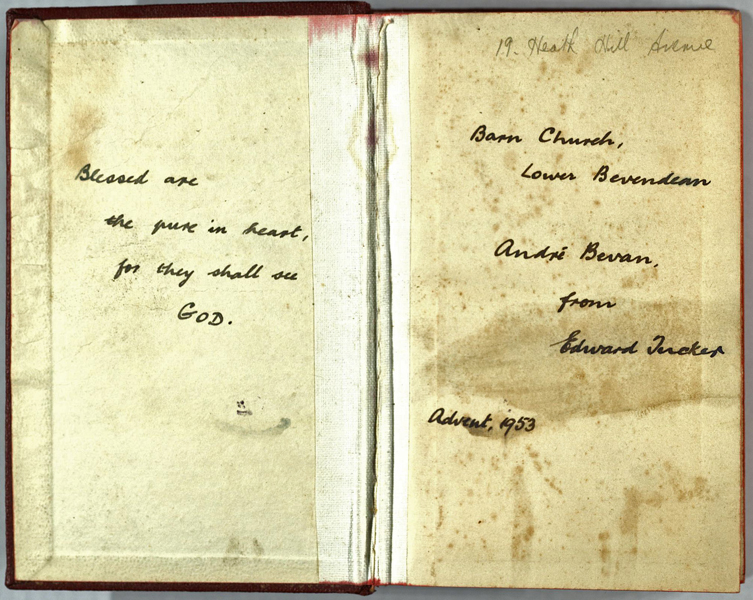 Blessed are
the pure in heart,
for they shall see
GOD.
19. Heath Hill Avenue
Barn Church,
Lower Bevendean
André Bevan,
from
Edward Tucker
Advent, 1953